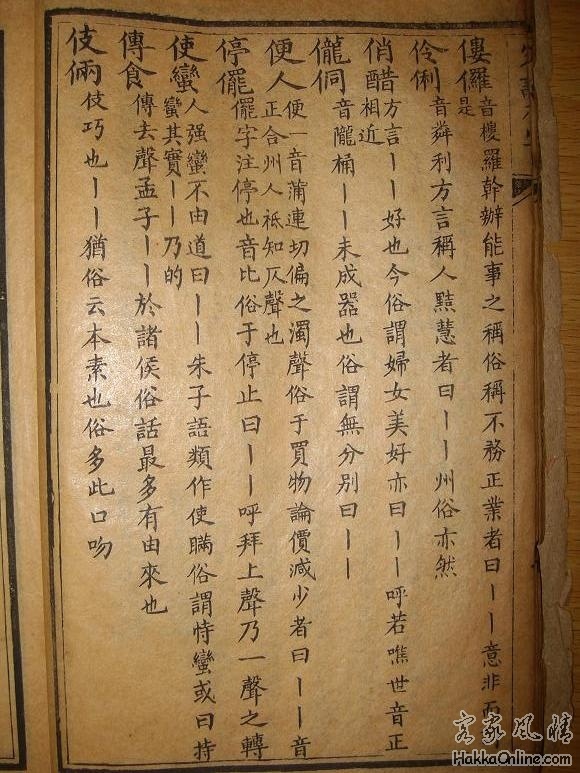 僂儸音樓羅幹辦能事之稱俗稱不務正業者曰丨丨意非
是
伶俐音粦利方言稱人黠慧者曰丨丨州俗亦然
俏醋方言丨丨好也今俗謂婦女美好亦曰丨丨呼若噍世音正
相近
儱侗音隴桶丨丨未成器也俗謂無分別曰丨丨
便人便一音蒲連切偏之濁聲俗于買物論價減少者曰丨丨音
正合州人祗知仄聲也
停罷罷字注停也音比俗于停止曰丨丨呼拜上聲乃一聲之轉
使蠻人强蠻不由道曰丨丨朱子語類作使瞞俗謂恃蠻或曰持
蠻其實丨丨乃的
傳食傳去聲孟子丨丨於諸侯俗話最多有由來也
伎倆伎巧也丨丨猶俗云本素也俗多此口吻
客家風情
HakkaOnline.com